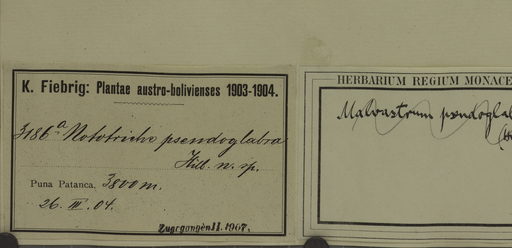 K. Fiebrig: Plantae austro-bolivienses 1903-1904.
3186a Nototriche pseudoglabra
Hill. n. sp.
Puna Patanca, 3800 m.
26. III. 04.
Zugegangen II. 1907.
HERBARIUM REGIUM MONACE
Malvastrum pseudoglab